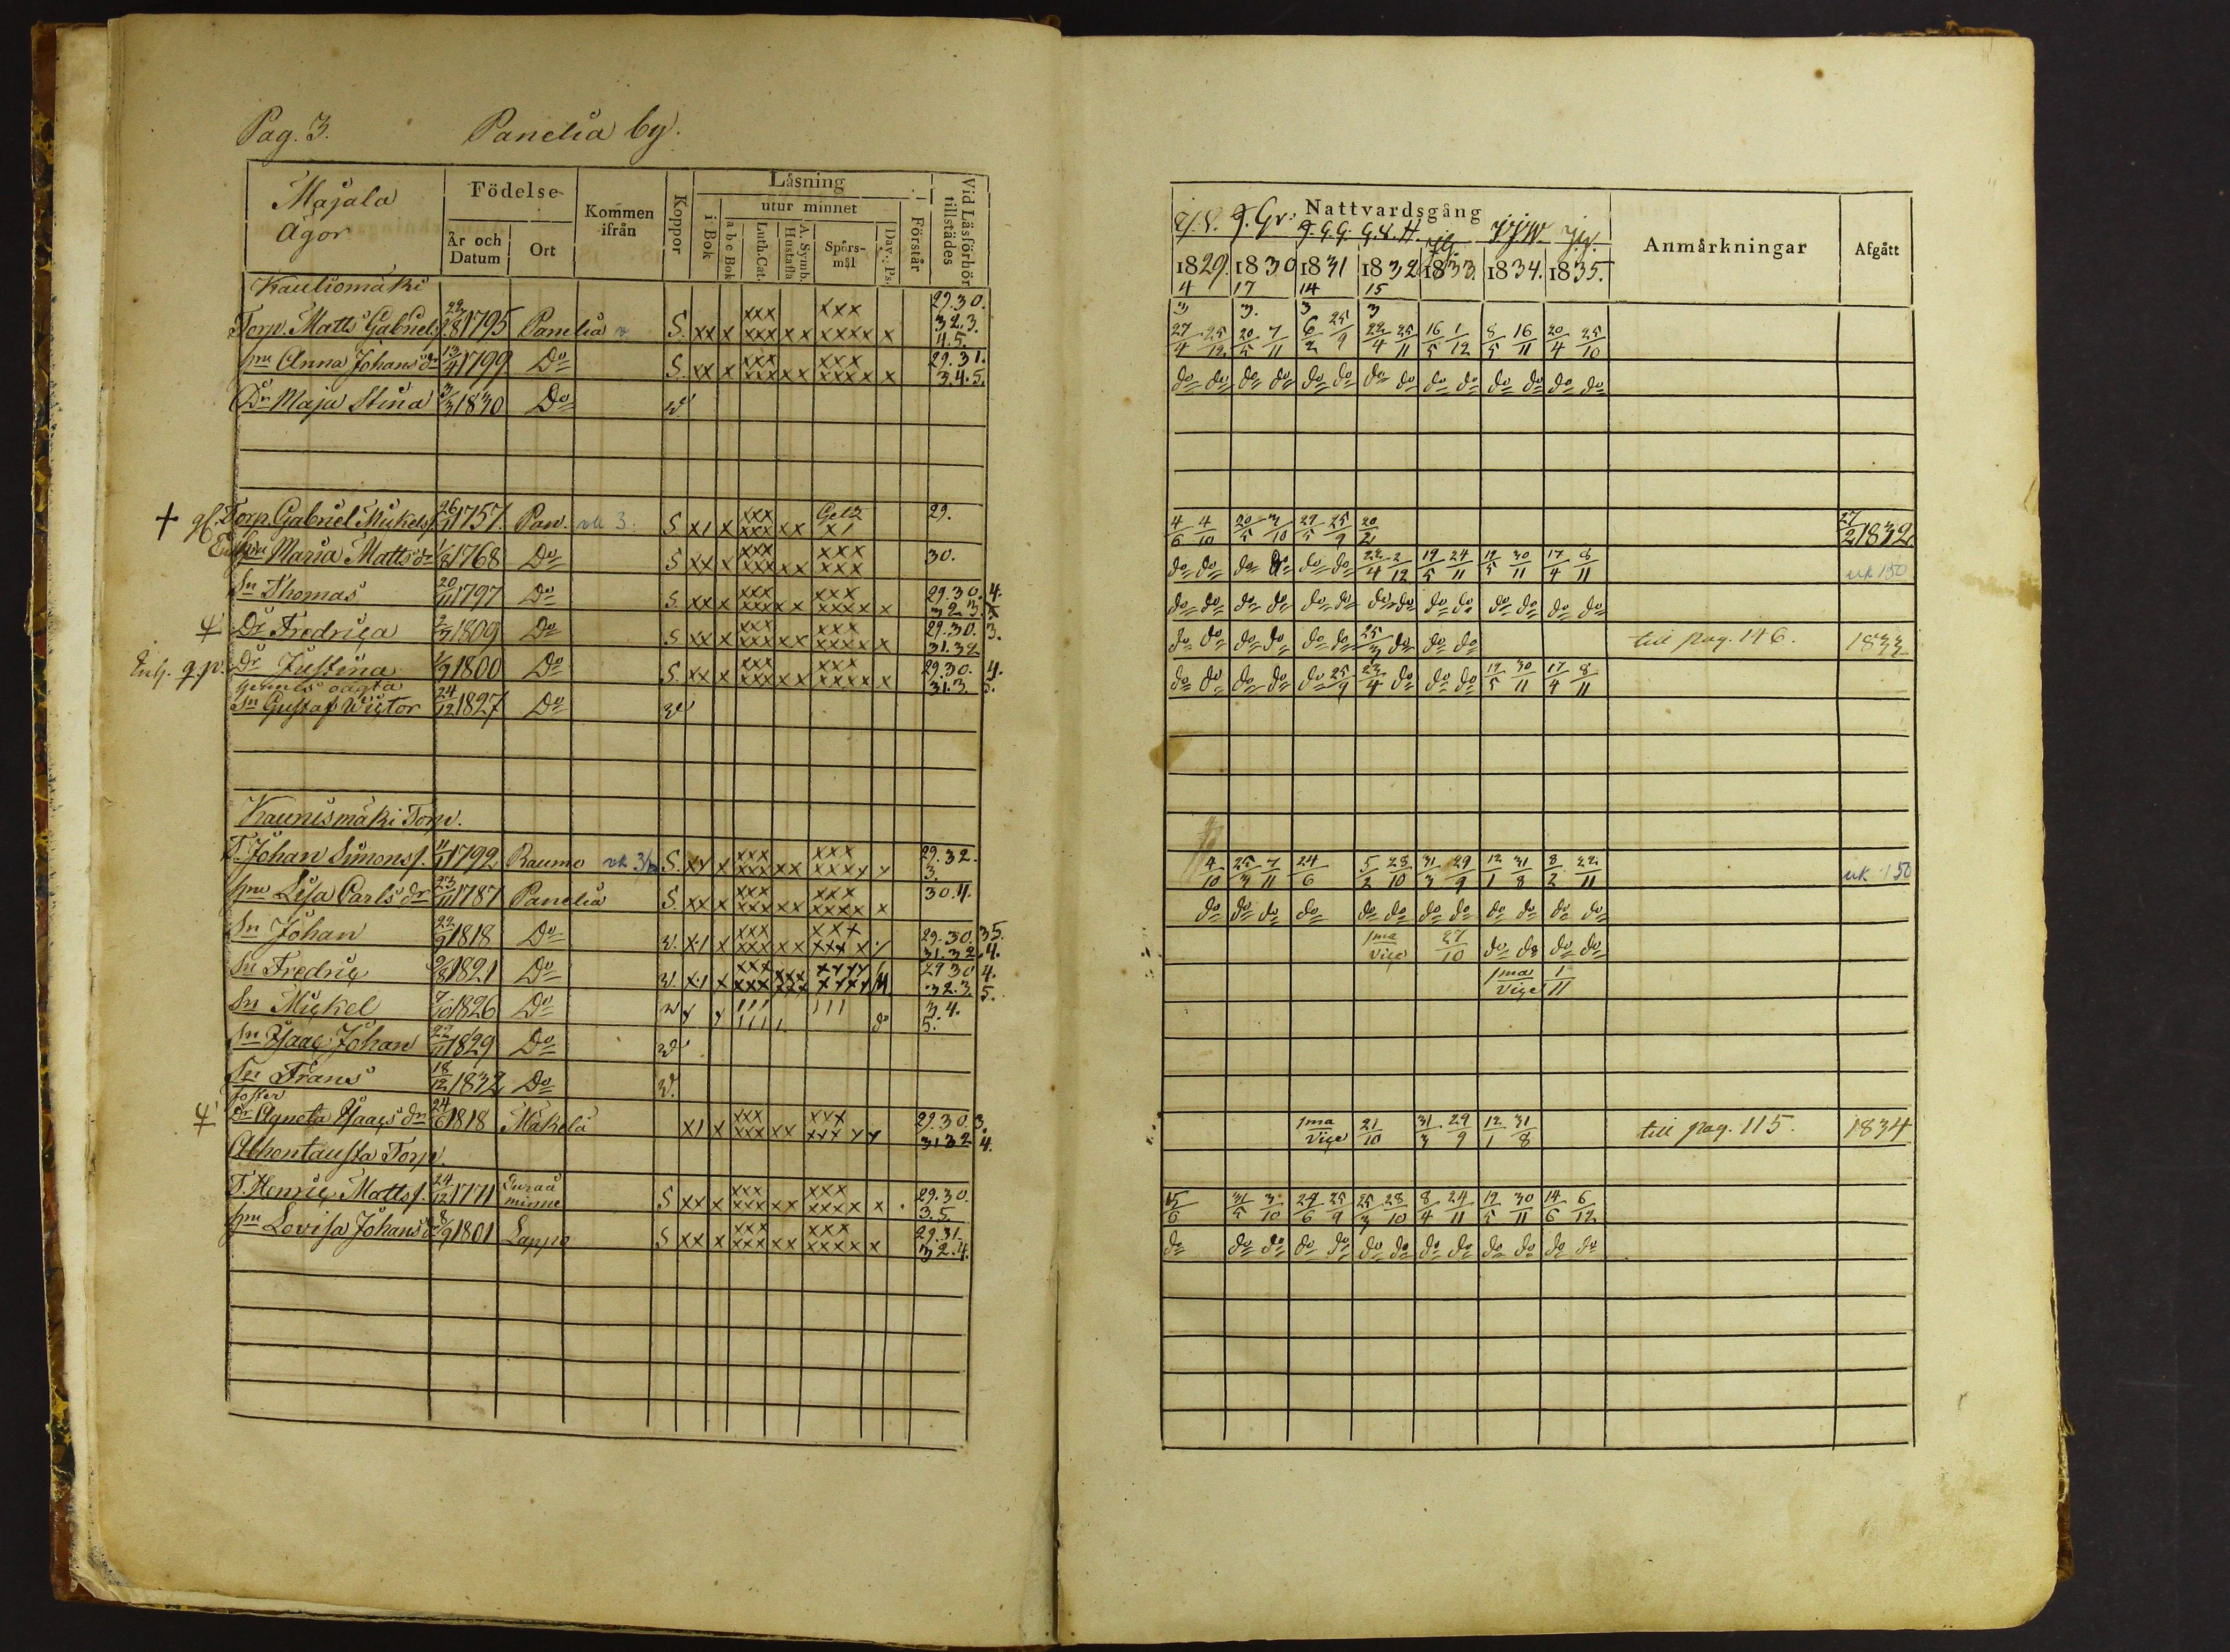 Pag. 3. Panelia by.
Majala Ägor
Födelse
År och Datum
Ort
Kommen ifrån
Koppor
Låsning
i Bok
utur minnet
a b c Bok
Luth. Cat.
A. Symb. Hustafla
Spörsmål
Dav. Ps.
Förstår
Vid Läsförhör tillstädes
Nattvardsgång
1829. 1830 1831 1832 1833. 1834. 1835.
4 17 14 15
3 3. 3 3
Anmärkningar
Afgått
Torp. Matts Gabriels. 22/8 1795 Panelia S. xx x xxx xxx 29.30. 32.3. 4.5. 27/4 25/12 20/5 7/11 6/2 25/9 22/4 25/11 16/5 1/12 5/5 16/11 20/4 25/10
hu Anna Johans dr 13/4 1799 Do S. xx x xxx xxx 29.31. 3.4.5. do do do do do do do do do do do do do do
Dr Maja Stina 3/3 1830 Do
+ Torp. Gabriel Mickels. 26/9 1757. Pan. S x1 x xxx xx x1 29. 4/6 4/10 20/5 3/10 29/5 25/9 20/2 27/2 1832.
Maria Matts dr 1/8 1768 Do S xx x xxx xxx 30. do do do do do do 22/4 2/12 19/5 24/11 19/5 30/11 17/4 8/11 uk 150
Sn Thomas 20/11 1797 Do S. xx x xxx xxx 29.30. 4. 32.3. do do do do do do do do do do do do do do
Dr Fredrica 2/7 1809 Do S xx x xxx xxx 29.30. 3. 31.32 do do do do do do 25/3 do do do till pag. 146. 1833
Dr Justina 1/9 1800 Do S. xx x xxx xxx 29.30. 4. 31.3. 5. do do do do do 25/9 22/4 do do do 19/5 30/11 17/4 8/11
hennes oägta
Sn Gustaf Wictor 24/12 1827 Do
Kaunismäki Torp.
T. Johan Simons s. 1792 Raumo S. xx x xxx xxx 29.32. 3. 4/10 25/3 7/11 24/6 5/2 28/10 31/3 29/9 12/1 31/8 8/2 22/11 uk 150
hu Lisa Carls dr 23/11 1787 Panelia S. xx x xxx xxx 30.4. do do do do do do do do do do do do
Sn Johan 22/9 1818 Do x1 x xxx xxx 29.30. 35. 31.32. 4. 1ma vice 27/10 do do do do
Sn Fredric 9/8 1821 Do x1 x xxx 29 30 4. 32.3. 5. 1ma vice 1/11
Sn Mickel 7/10 1826 Do 3.4. 5.
Sn Isaac Johan 27/11 1829 Do
Sn Frans 18/12 1832 Do
foster
Dr Agneta Isaacs dr 24/6 1818 Mäkelä x1 x xxx xxx 29.30. 3. 31 32 4. 1ma vice 21/10 31/3 29/9 12/1 31/8 till pag. 115. 1834
Ahontausta Torp.
T. Henric Matts s. 24/12 1771 Euraå minne S xx x xxx xxx 29.30. 3.5. 15/6 31/5 3/10 24/6 25/9 25/3 28/10 8/4 24/11 19/5 30/11 14/6 6/12
hu Lovisa Johans dr 8/9 1801 Lappo S xx x xxx xxx 29.31. 32.4. do do do do do do do do do do do do do